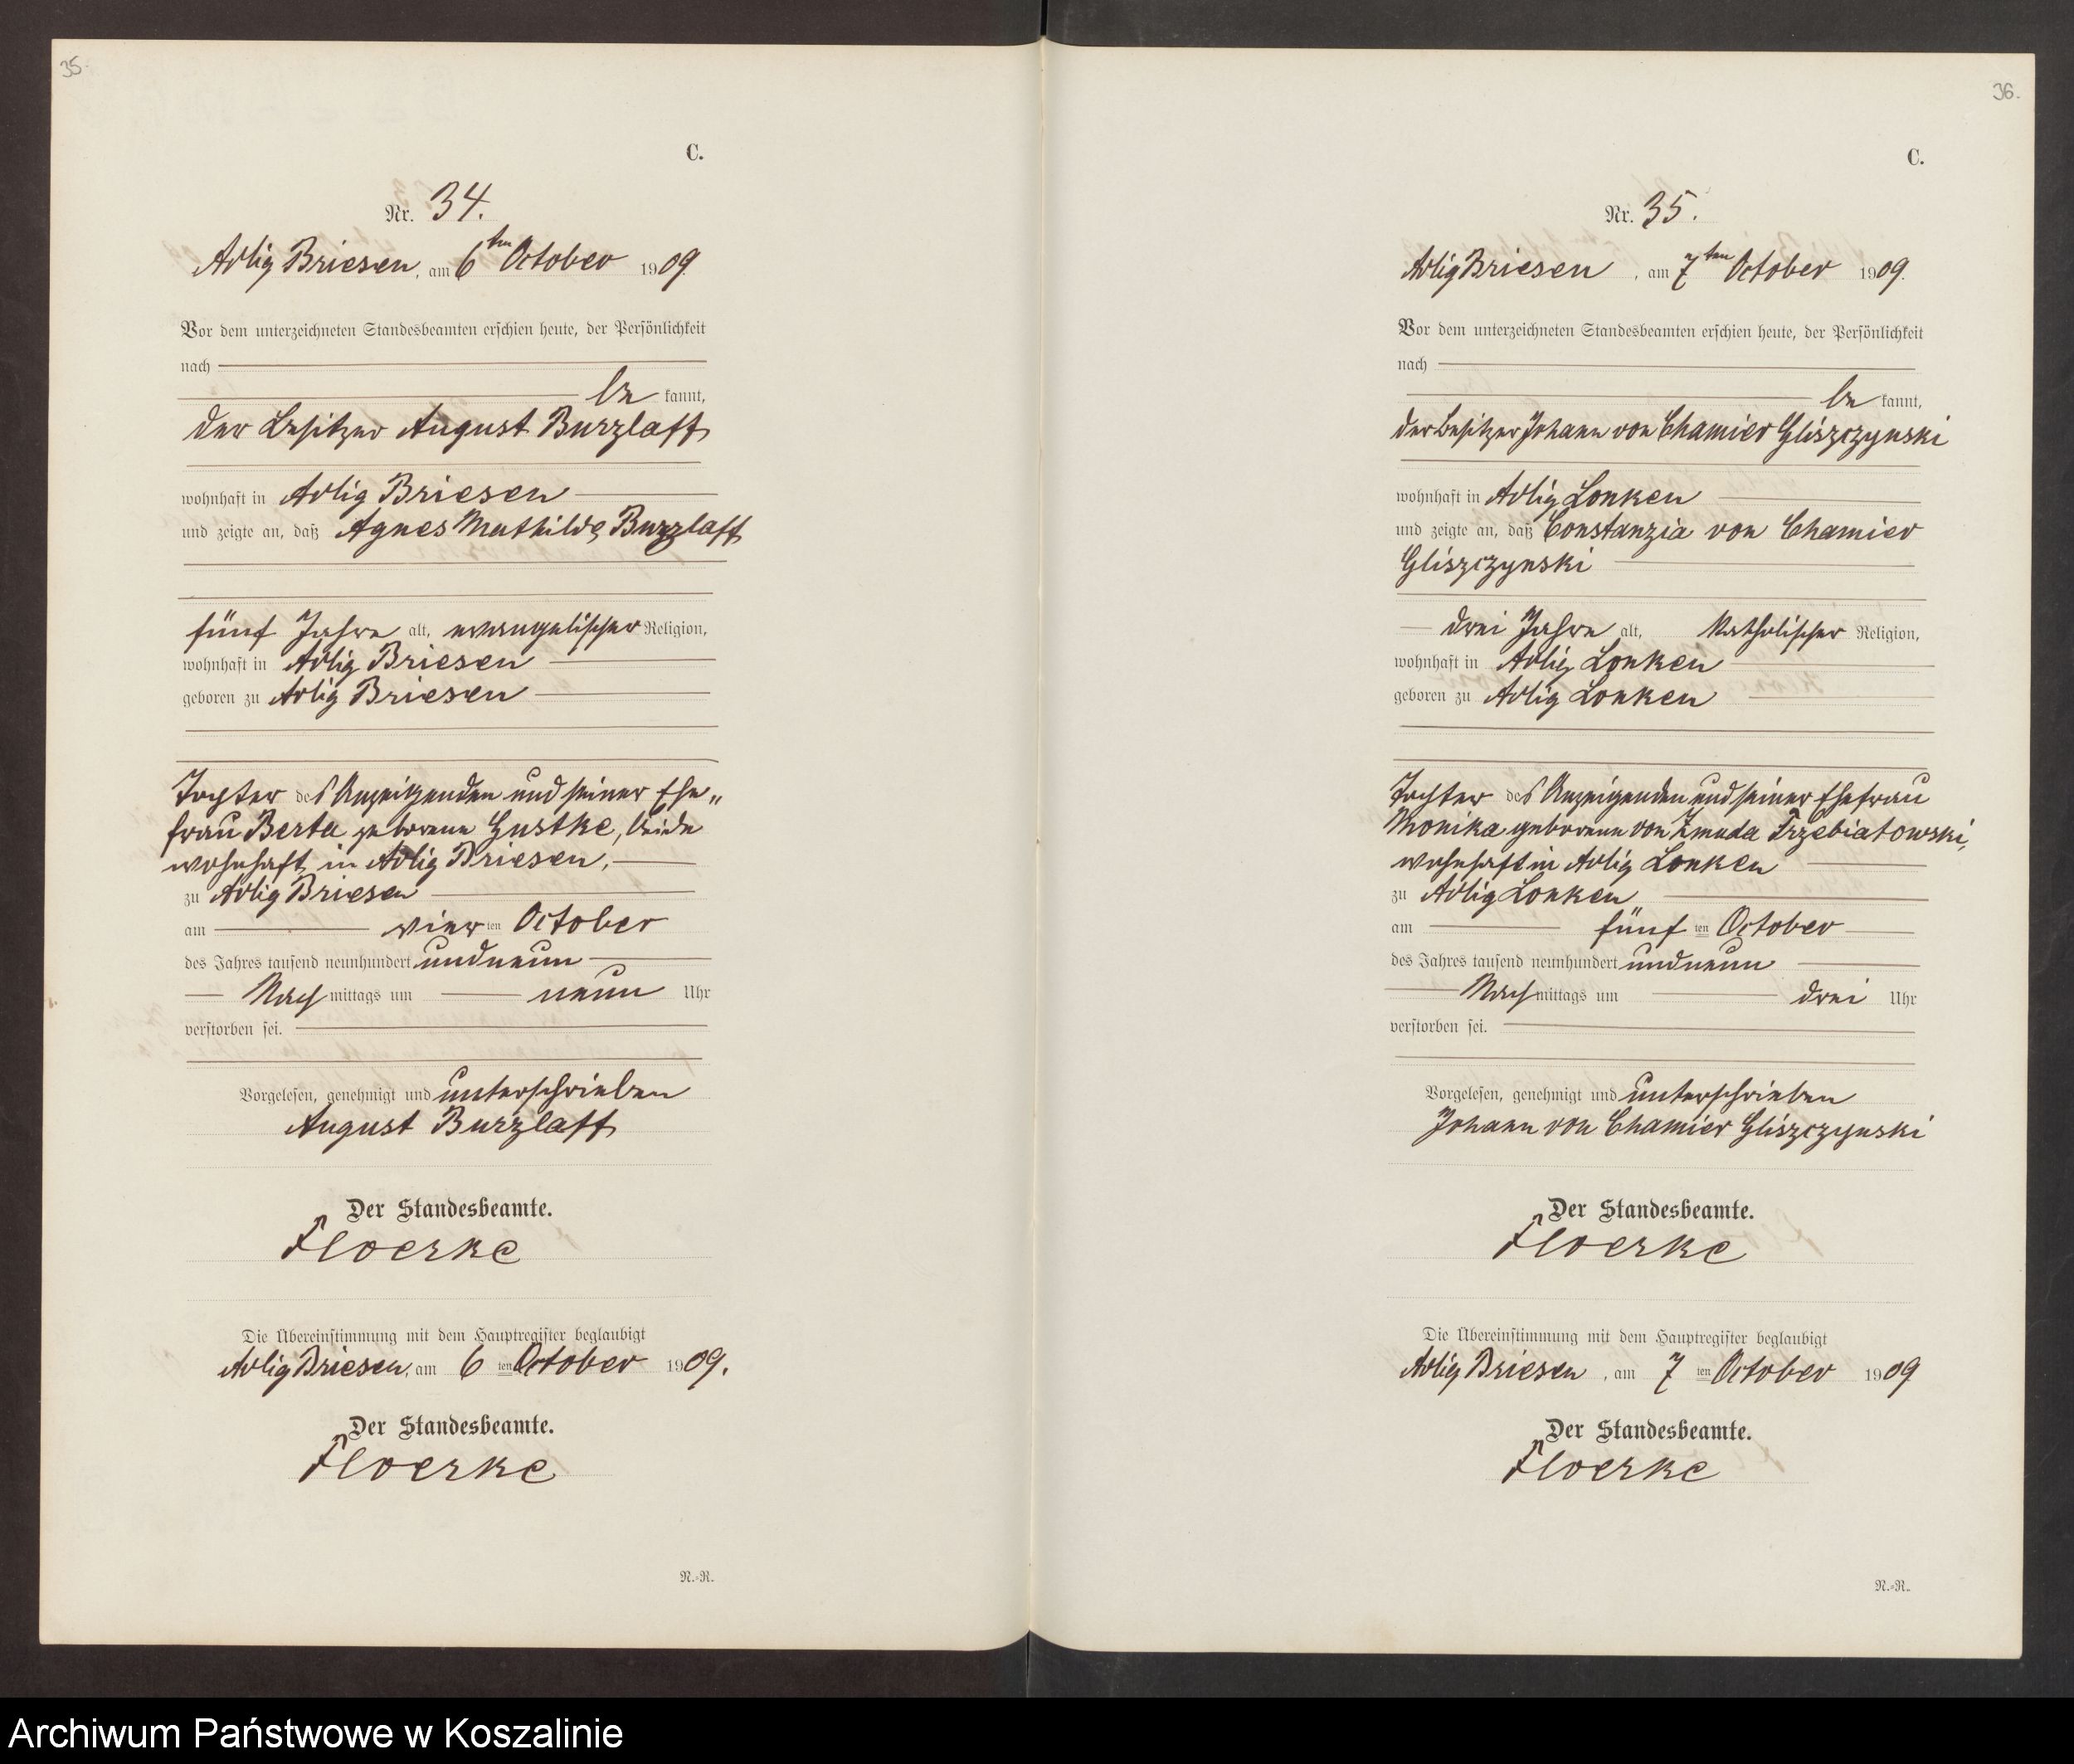 35.
C.
Nr. 34.
Adlig Briesen, am 6ten October 1909.
Vor dem unterzeichneten Standesbeamten erschien heute, der Persönlichkeit
nach
be kannt,
der Besitzer August Burzlaff
wohnhaft in Adlig Briesen
und zeigte an, daß Agnes Mathilde Burzlaff
fünf Jahre alt, evangelischer Religion,
wohnhaft in Adlig Briesen
geboren zu Adlig Briesen
Tochter des Anzeigenden und seiner Ehe„
frau Berta geborene Gustke, beide
wohnhaft in Adlig Briesen,
zu Adlig Briesen
am vier ten October
des Jahres tausend neunhundert undneun
Nach mittags um neun Uhr
verstorben sei.
Vorgelesen, genehmigt und unterschrieben
August Burzlaff
Der Standesbeamte.
Floerke
Die Übereinstimmung mit dem Hauptregister beglaubigt
Adlig Briesen, am 6 ten October 1909.
Der Standesbeamte.
Floerke
N.-R.
36.
C.
Nr. 35.
Adlig Briesen, am 7ten October 1909.
Vor dem unterzeichneten Standesbeamten erschien heute, der Persönlichkeit
nach
be kannt,
der Besitzer Johann von Chamier Gliszczynski
wohnhaft in Adlig Lonken
und zeigte an, daß Constanzia von Chamier
Gliszczynski
drei Jahre alt, katholischer Religion,
wohnhaft in Adlig Lonken
geboren zu Adlig Lonken
Tochter des Anzeigenden und seiner Ehefrau
Monika geborenen von Zmuda Trzebiatowski,
wohnhaft in Adlig Lonken
zu Adlig Lonken
am fünf ten October
des Jahres tausend neunhundert undneun
Nach mittags um drei Uhr
verstorben sei.
Vorgelesen, genehmigt und unterschrieben
Johann von Chamier Gliszczynski
Der Standesbeamte.
Floerke
Die Übereinstimmung mit dem Hauptregister beglaubigt
Adlig Briesen, am 7 ten October 1909
Der Standesbeamte.
Floerke
N.-R.
Archiwum Państwowe w Koszalinie